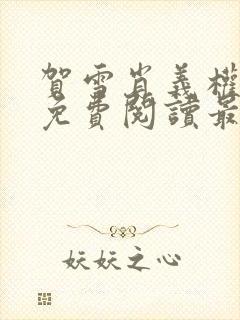 賀雪肖義權
免費閱讀最
妖妖之心